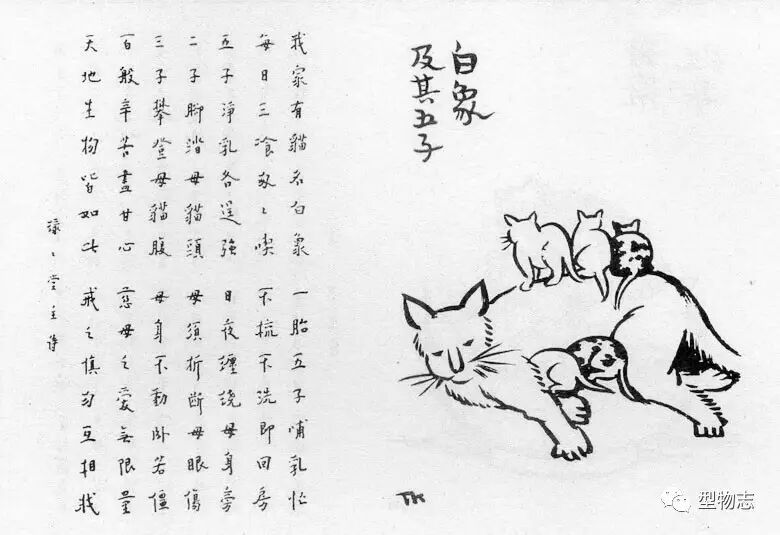 白象
及其五子
TK
我家有貓名白象 一胎五子哺乳忙
每日三飡匆〻喫 不梳不洗即回房
五子淨乳各逞強 日夜纏繞母身旁
二子腳踏母貓頭 母須折斷母眼傷
三子攀登母貓腹 母身不動臥若僵
百般辛苦盡甘心 慈母之愛無限量
天地生物皆如此 戒之慎勿互相戕
緣〻堂主詩
型物志